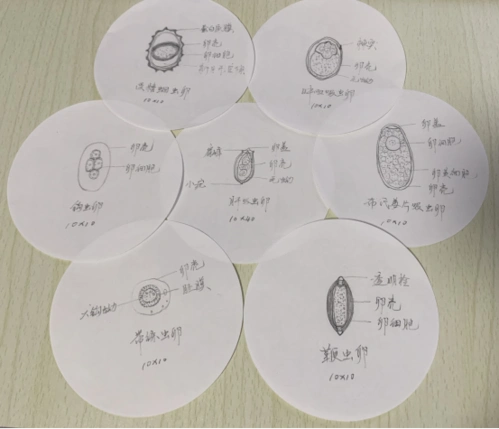 蛋白质膜
卵壳
卵细胞
受精蛔虫卵
10×10
棘突
卵壳
毛蚴
日本血吸虫卵
10×10
卵壳
卵细胞
钩虫卵
10×10
肩峰
卵盖
卵壳
毛蚴
小疣
肝吸虫卵
10×40
卵盖
卵细胞
卵黄细胞
卵壳
布氏姜片吸虫卵
10×10
卵壳
胚膜
六钩蚴
带绦虫卵
10×10
透明栓
卵壳
卵细胞
鞭虫卵
10×10